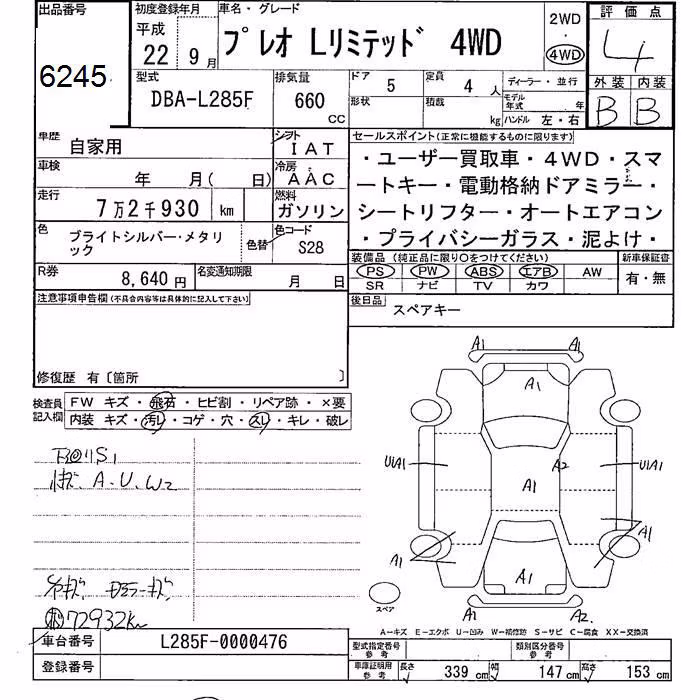 出品番号
6245
初度登録年月
平成
22 9 月
車名・グレード
プレオ Lリミテッド 4WD
2WD
・
4WD
評価点
4
外装 内装
B B
型式
DBA-L285F
排気量
660
CC
ドア 5
定員 4 人
形状
積載 kg
ディーラー・並行
モデル年式 年
ハンドル 左・右
車歴 自家用
シフト IAT
車検 年 月( 日)
冷房 AAC
走行 7万2千930 km
燃料 ガソリン
色 ブライトシルバー・メタリ
ック
色替
色コード S28
R券 8,640 円
名変通知期限 月 日
セールスポイント(正常に機能するものに限ります)
・ユーザー買取車・4WD・スマ
ートキー・電動格納ドアミラー・
シートリフター・オートエアコン
・プライバシーガラス・泥よけ・
装備品 (純正品に限り〇をつけてください)
新車保証書
PS PW ABS エアB AW
有・無
SR ナビ TV カワ
後日品 スペアキー
注意事項申告欄(不具合内容等は具体的に記入して下さい)
修復歴 有〔箇所 〕
検査員
記入欄
FW キズ・飛石・ヒビ割・リペア跡・×要
内装 キズ・汚レ・コゲ・穴・スレ・キレ・破レ
下廻りS1
A、U、W2
72932km
A1 A1
A1
U1A1
A2
U1A1
A1
A1
A1
A1
A1 A2
スペア
A―キズ E―エクボ U―凹み W―補修跡 S―サビ C―腐食 XX―交換済
車台番号 L285F-0000476
登録番号
型式指定番号
参考
類別区分番号
参考
車庫証明用
参考
長さ 339 cm 幅 147 cm 高さ 153 cm